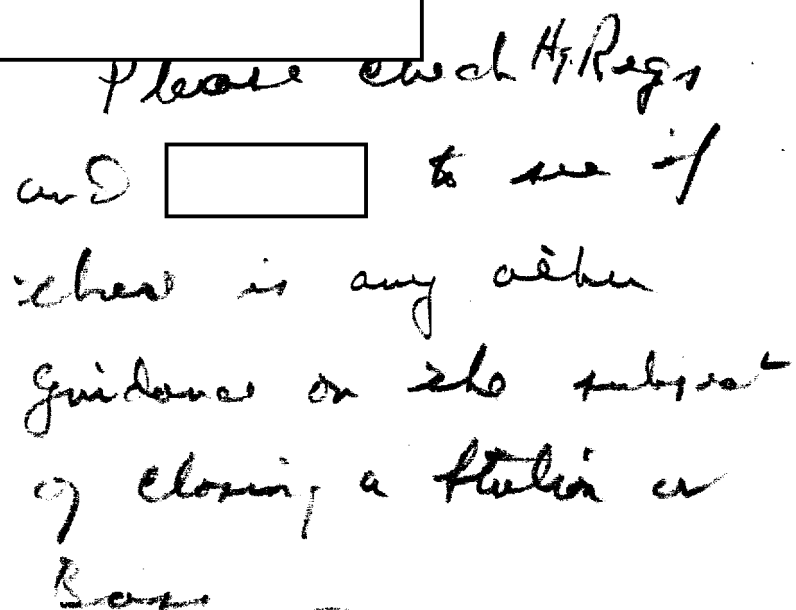 Please check Hq Regs
and to see if
there is any other
guidance on the subject
of closing a station or
Base